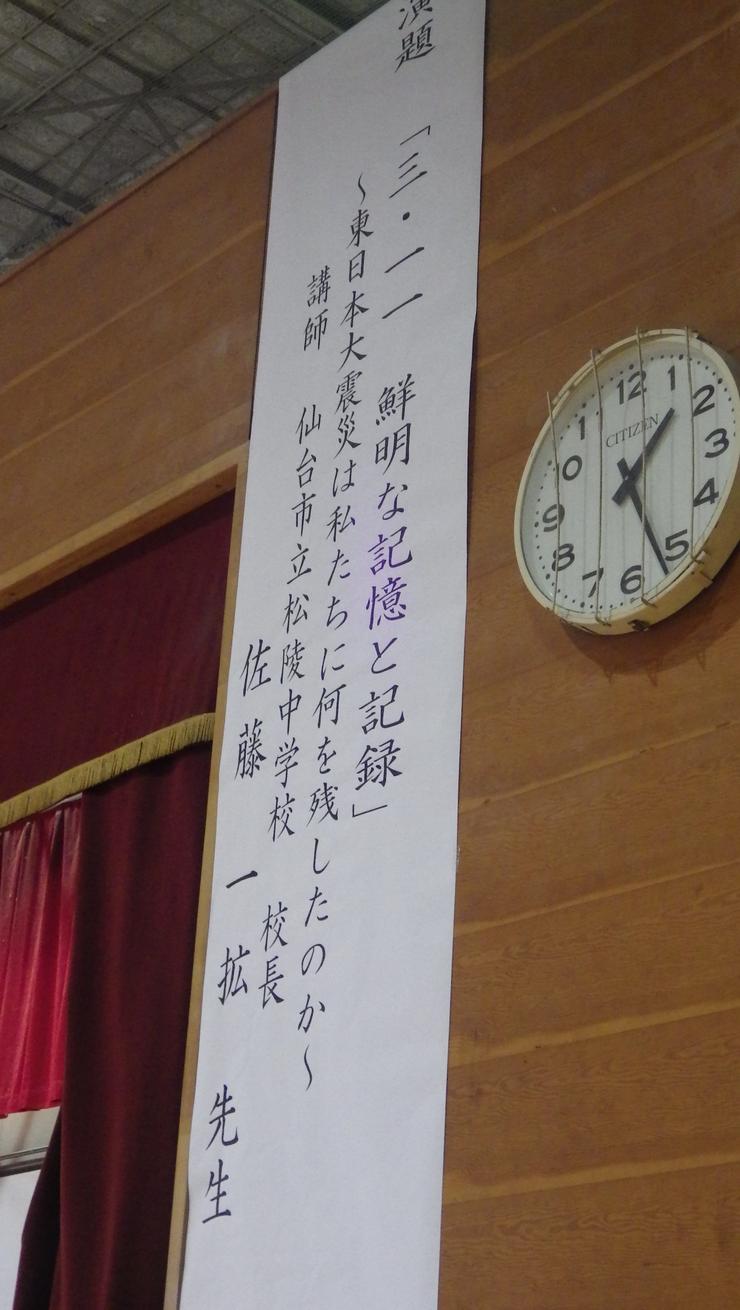 演題 「三・一一 鮮明な記憶と記録」
～東日本大震災は私たちに何を残したのか～
講師 仙台市立松陵中学校 校長
佐藤 一拡 先生
CITIZEN
12
1
2
3
4
5
6
7
8
9
10
11